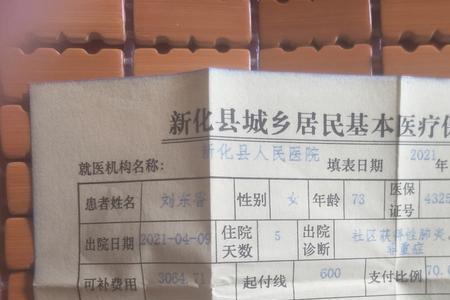 新化县城乡居民基本医疗保
就医机构名称: 新化县人民医院 填表日期 2021 年
患者姓名 刘东容 性别 女 年龄 73 医保证号 4325
出院日期 2021-04-09 住院天数 5 出院诊断 社区获得性肺炎,非重症
可补费用 3064.71 起付线 600 支付比例 70.